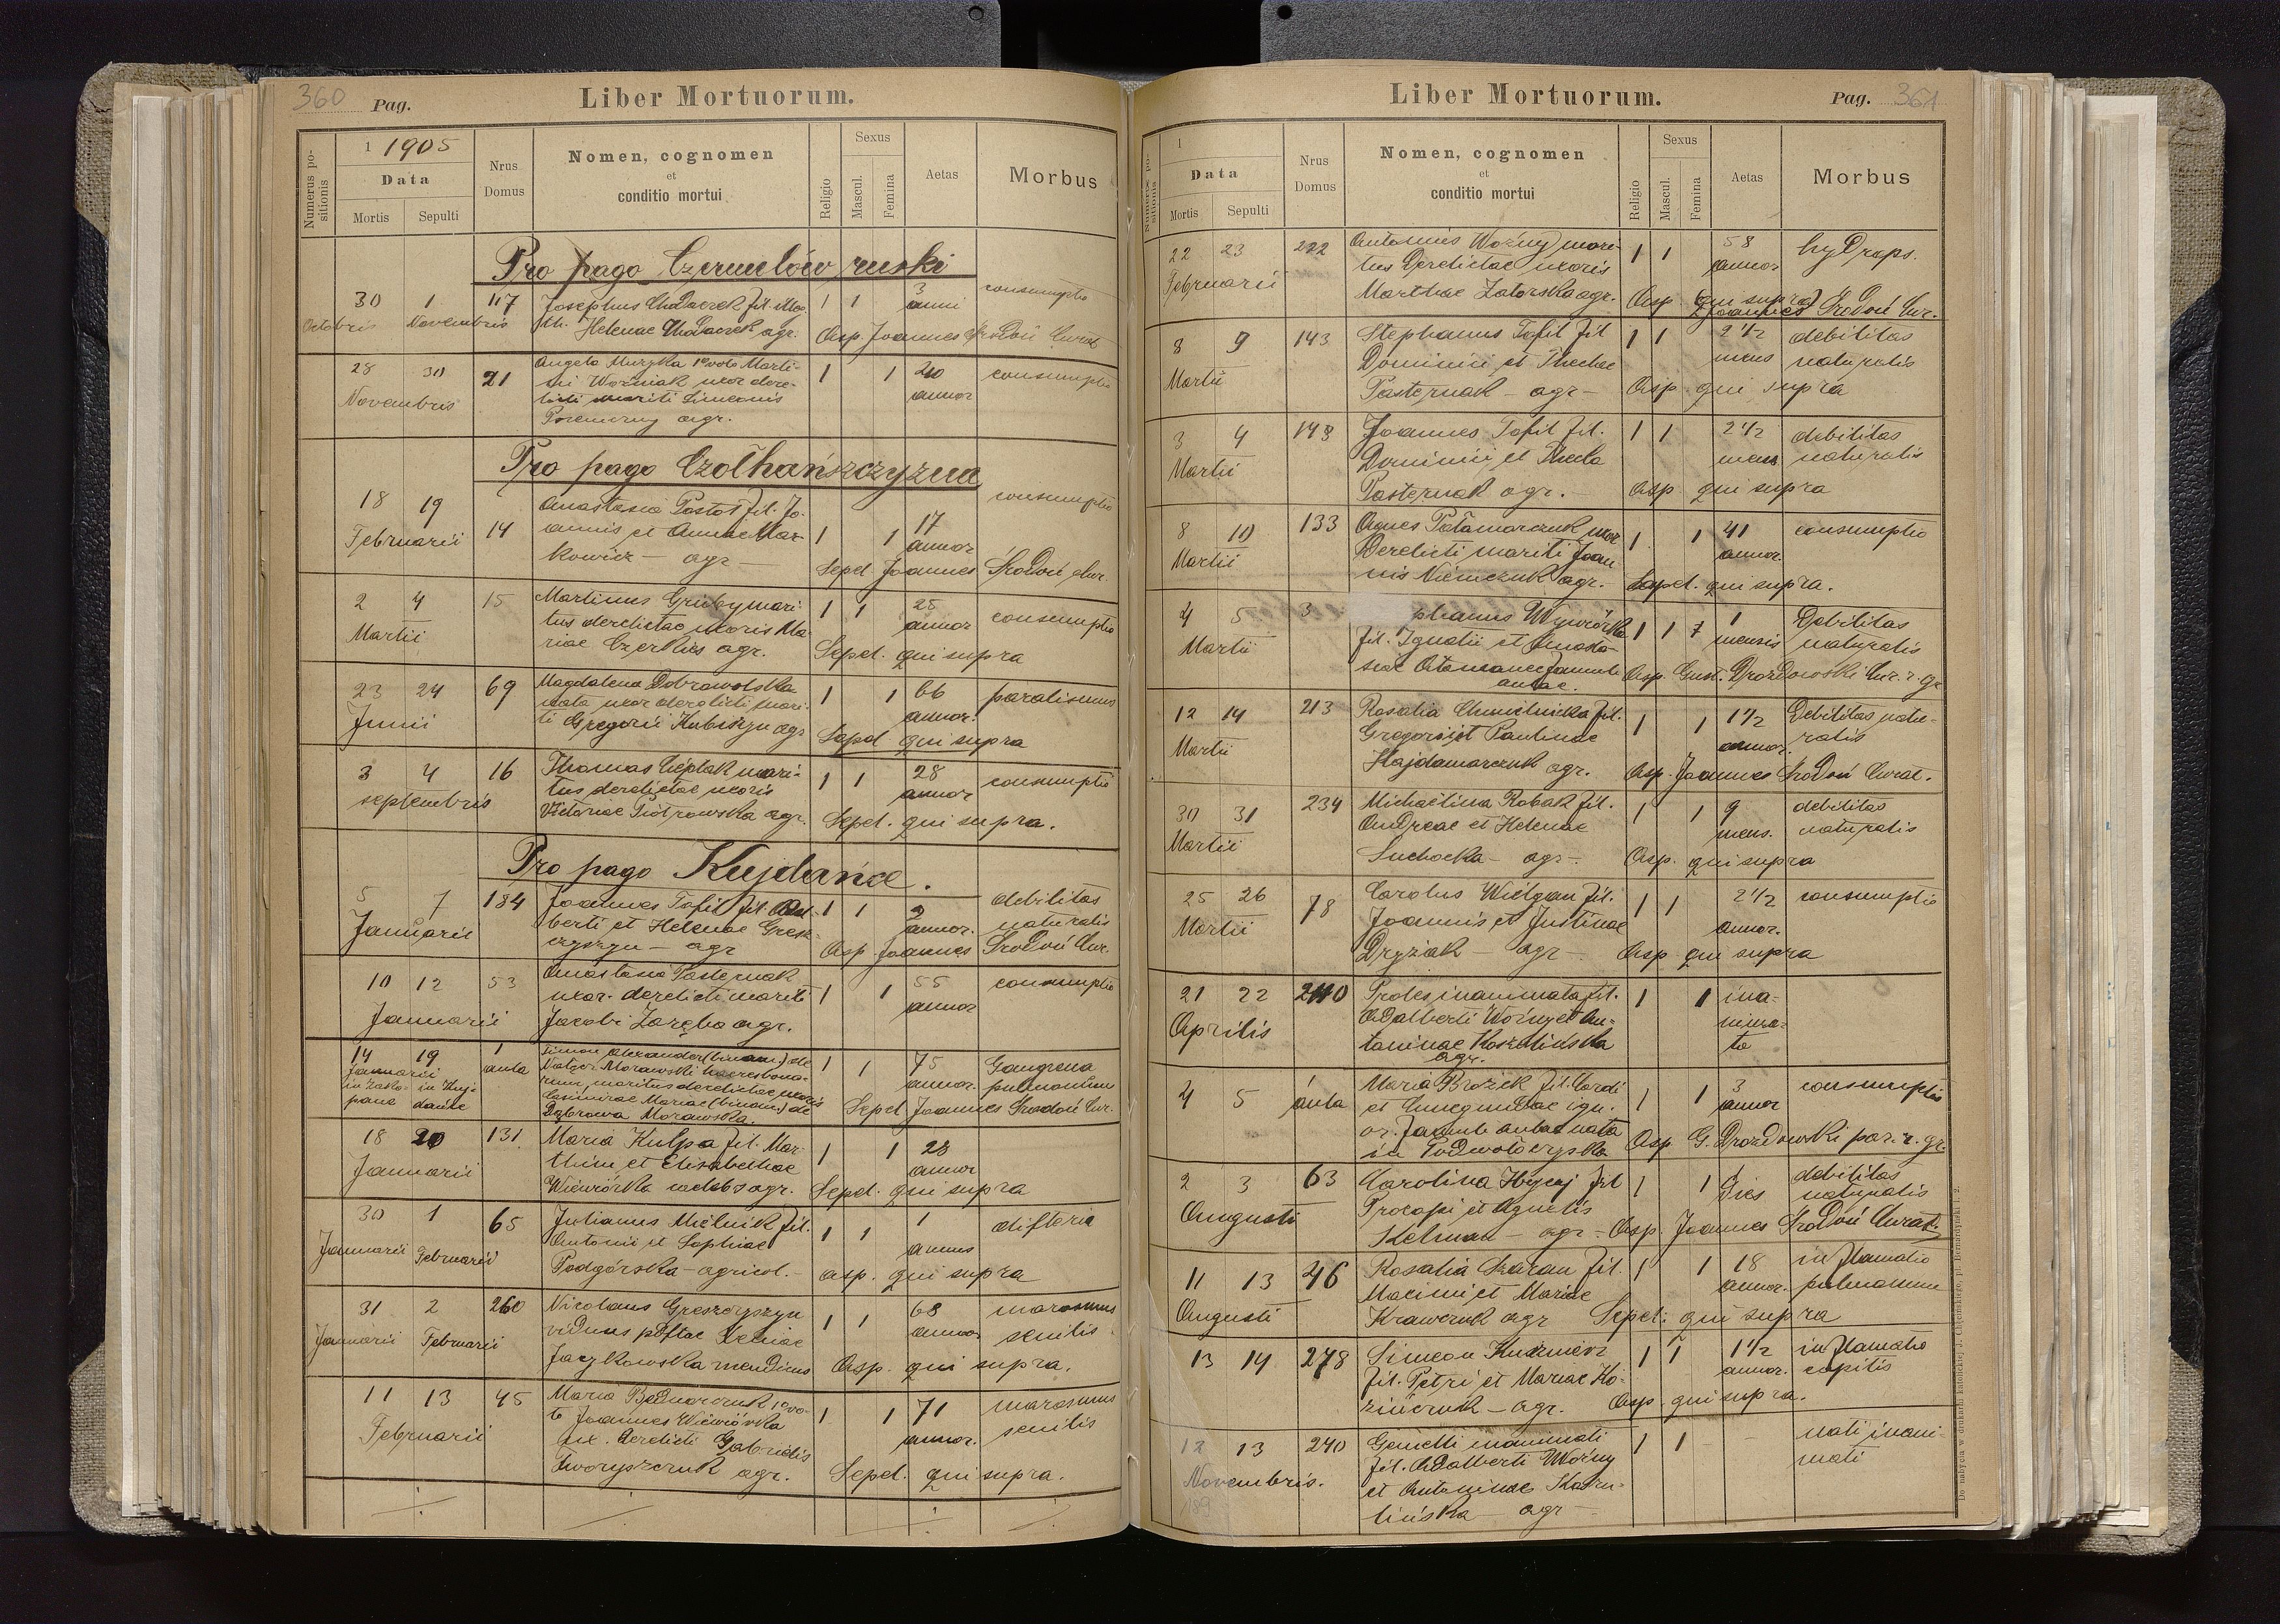 360 Pag. Liber Mortuorum.
Numerus positionis
1 1905
Data
Mortis Sepulti
Nrus Domus
Nomen, cognomen
et
conditio mortui
Religio
Sexus
Mascul. Femina
Aetas
Morbus
Pro pago Czernelów ruski
30 1 117 Josephus Chodaczek fil. 1 1 3 anni consumptio
Octobris Novembris Helenae Chodaczek agr. Asp. Joannes Środoń Curat
28 30 21 Angela Muzyka 1º voto Marti-
ni Woźniak uxor dere- 1 1 40 annor consumptio
Novembris licti mariti Simeonis
agr.
Pro pago Czołhańszczyzna
18 19 14 Anastasia Postoł fil. Jo- consumptio
Februarii annis et Annae Mar- 1 1 17 annor
kowicz — agr — Sepel Joannes Środoń Cur.
2 4 15 Martinus Gruby mari- 1 1 25 annor consumptio
Martii tus derelictae uxoris Ma-
riae Czerkies agr. Sepel. qui supra
23 24 69 Magdalena Dobrowolska 1 1 66 annor. paralismus
Junii nata uxor derelicti mari-
ti Gregorii agr Sepel qui supra
3 4 16 Thomas Cieplak mari- 1 1 28 annor consumptio
septembris tus derelictae uxoris
Victoriae Piotrowska agr. Sepel. qui supra.
Pro pago Kujdańce.
5 7 184 Joannes Tofil fil. Adal- 1 1 2 annor. debilitas naturalis
Januarii berti et Helenae Gresz-
czyszyn — agr Asp Joannes Środoń Cur.
10 12 53 Anastasia Pasternak
uxor. derelicti mariti 1 1 55 annor consumptio
Januarii Jacobi Zaręba agr.
14 19 1 Simon Alexander (binom) de
Januarii aula Morawski haeres bono- 1 1 75 annor. Gangrena pulmonum
in Zako- in Kuj- rum, maritus derelictae uxoris
pane dańce Casimirae Mariae (binom) de
Dąbrowa Morawska. Sepel Joannes Środoń Cur.
18 20 131. Maria Kulpa fil. Mar- 1 1 28 annor
Januarii thini et Elisabethae
Wiewiórka agr. Sepel. qui supra
30 1 65 Julianus Mielnik fil. 1 1 1 annus difteria
Januarii Februarii Antonii et Sophiae
Podgórska — agricol. — asp. qui supra
31 2 260 Nicolaus Greszczyszyn 1 1 68 annor marasmus senilis
Januarii Februarii viduus Xeniae
Jaczkowska mendicus Asp. qui supra.
11 13 45 Maria Bednarczuk 1º vo-
to Joannes Wiewiórka 1 1 71 annor. marasmus senilis
Februarii derelicti Gabrielis
agr. Sepel. qui supra.
Liber Mortuorum. Pag. 361
Numerus positionis
1
Data
Mortis Sepulti
Nrus Domus
Nomen, cognomen
et
conditio mortui
Religio
Sexus
Mascul. Femina
Aetas
Morbus
22 23 222 Antonius Woźny mari- 1 1 58 annor hydraps.
Februarii tus derelictae uxoris
Marthae Zatorska agr. Asp (qui supra) Joannes Środoń Cur.
8 9 143 Stephanus Tofil fil 1 1 2 1/2 mens debilitas naturalis
Martii Dominici et Theclae
Pasternak — agr — Asp qui supra
3 4 143 Joannes Tofil fil. 1 1 2 1/2 mens debilitas naturalis
Martii Dominici et Thecla
Pasternak agr. — Asp qui supra
8 10 133 Agnes Pałamarczuk uxor 1 1 41 annor. consumptio
Martii derelicti mariti Joan-
nis Niemczuk agr. Sepel. qui supra.
4 5 3 phanus Wiewiórka 1 1 1 mensis Debilitas naturalis
Martii fil. Ignatii et Anasta-
siae aulae. Asp. Gust. Drozdowski Cur. r. gr
12 14 213 Rosalia Chmielnicka fil. 1 1 1 1/2 annor. Debilitas natu-
ralis
Martii Gregorii et Paulinae
Hajdamarczuk agr. Asp. Joannes Środoń Curat.
30 31 234 Michaëlina Robak fil. 1 1 9 mens. debilitas naturalis
Martii Andreae et Helenae
Suchocka — agr — Asp. qui supra
25 26 78 Carolus Wielgan fil. 1 1 2 1/2 annor. consumptio
Martii Joannis et Justinae
Dryziak — agr — Asp qui supra
21 22 240 Proles inanimata fil. 1 1 ina-
nima-
ta
Aprilis Adalberti Woźny et An-
toninae Koszelińska
agr.
4 5 aula Maria Brożek fil. Caroli 1 1 3 annor consumptio
et Cunegundae
aulae nata
in Podwołoczyska Asp G. Drozdowski par. r. gr.
2 3 63 Carolina Hycej fil 1 1 1 dies debilitas naturalis
Augusti Procopi et Agnetis
Kelman — agr — Asp. Joannes Środoń Curat.
11 13 46 Rosalia Szaran fil. 1 1 18 annor. inflamatio pulmonum
Augusti Maximi et Mariae
Krawczuk agr Sepel: qui supra
13 14 278 Simeon Kuźniewicz 1 1 1 1/2 annor. inflamatio capitis
fil. Petri et Mariae Ko-
zińczuk — agr. Asp. qui supra.
12 13 240 Gemelli inanimati 1 1 — nati inani-
mati
Novembris. fil. Adalberti Woźny
et Antoninae Kosze-
lińska — agr —
189